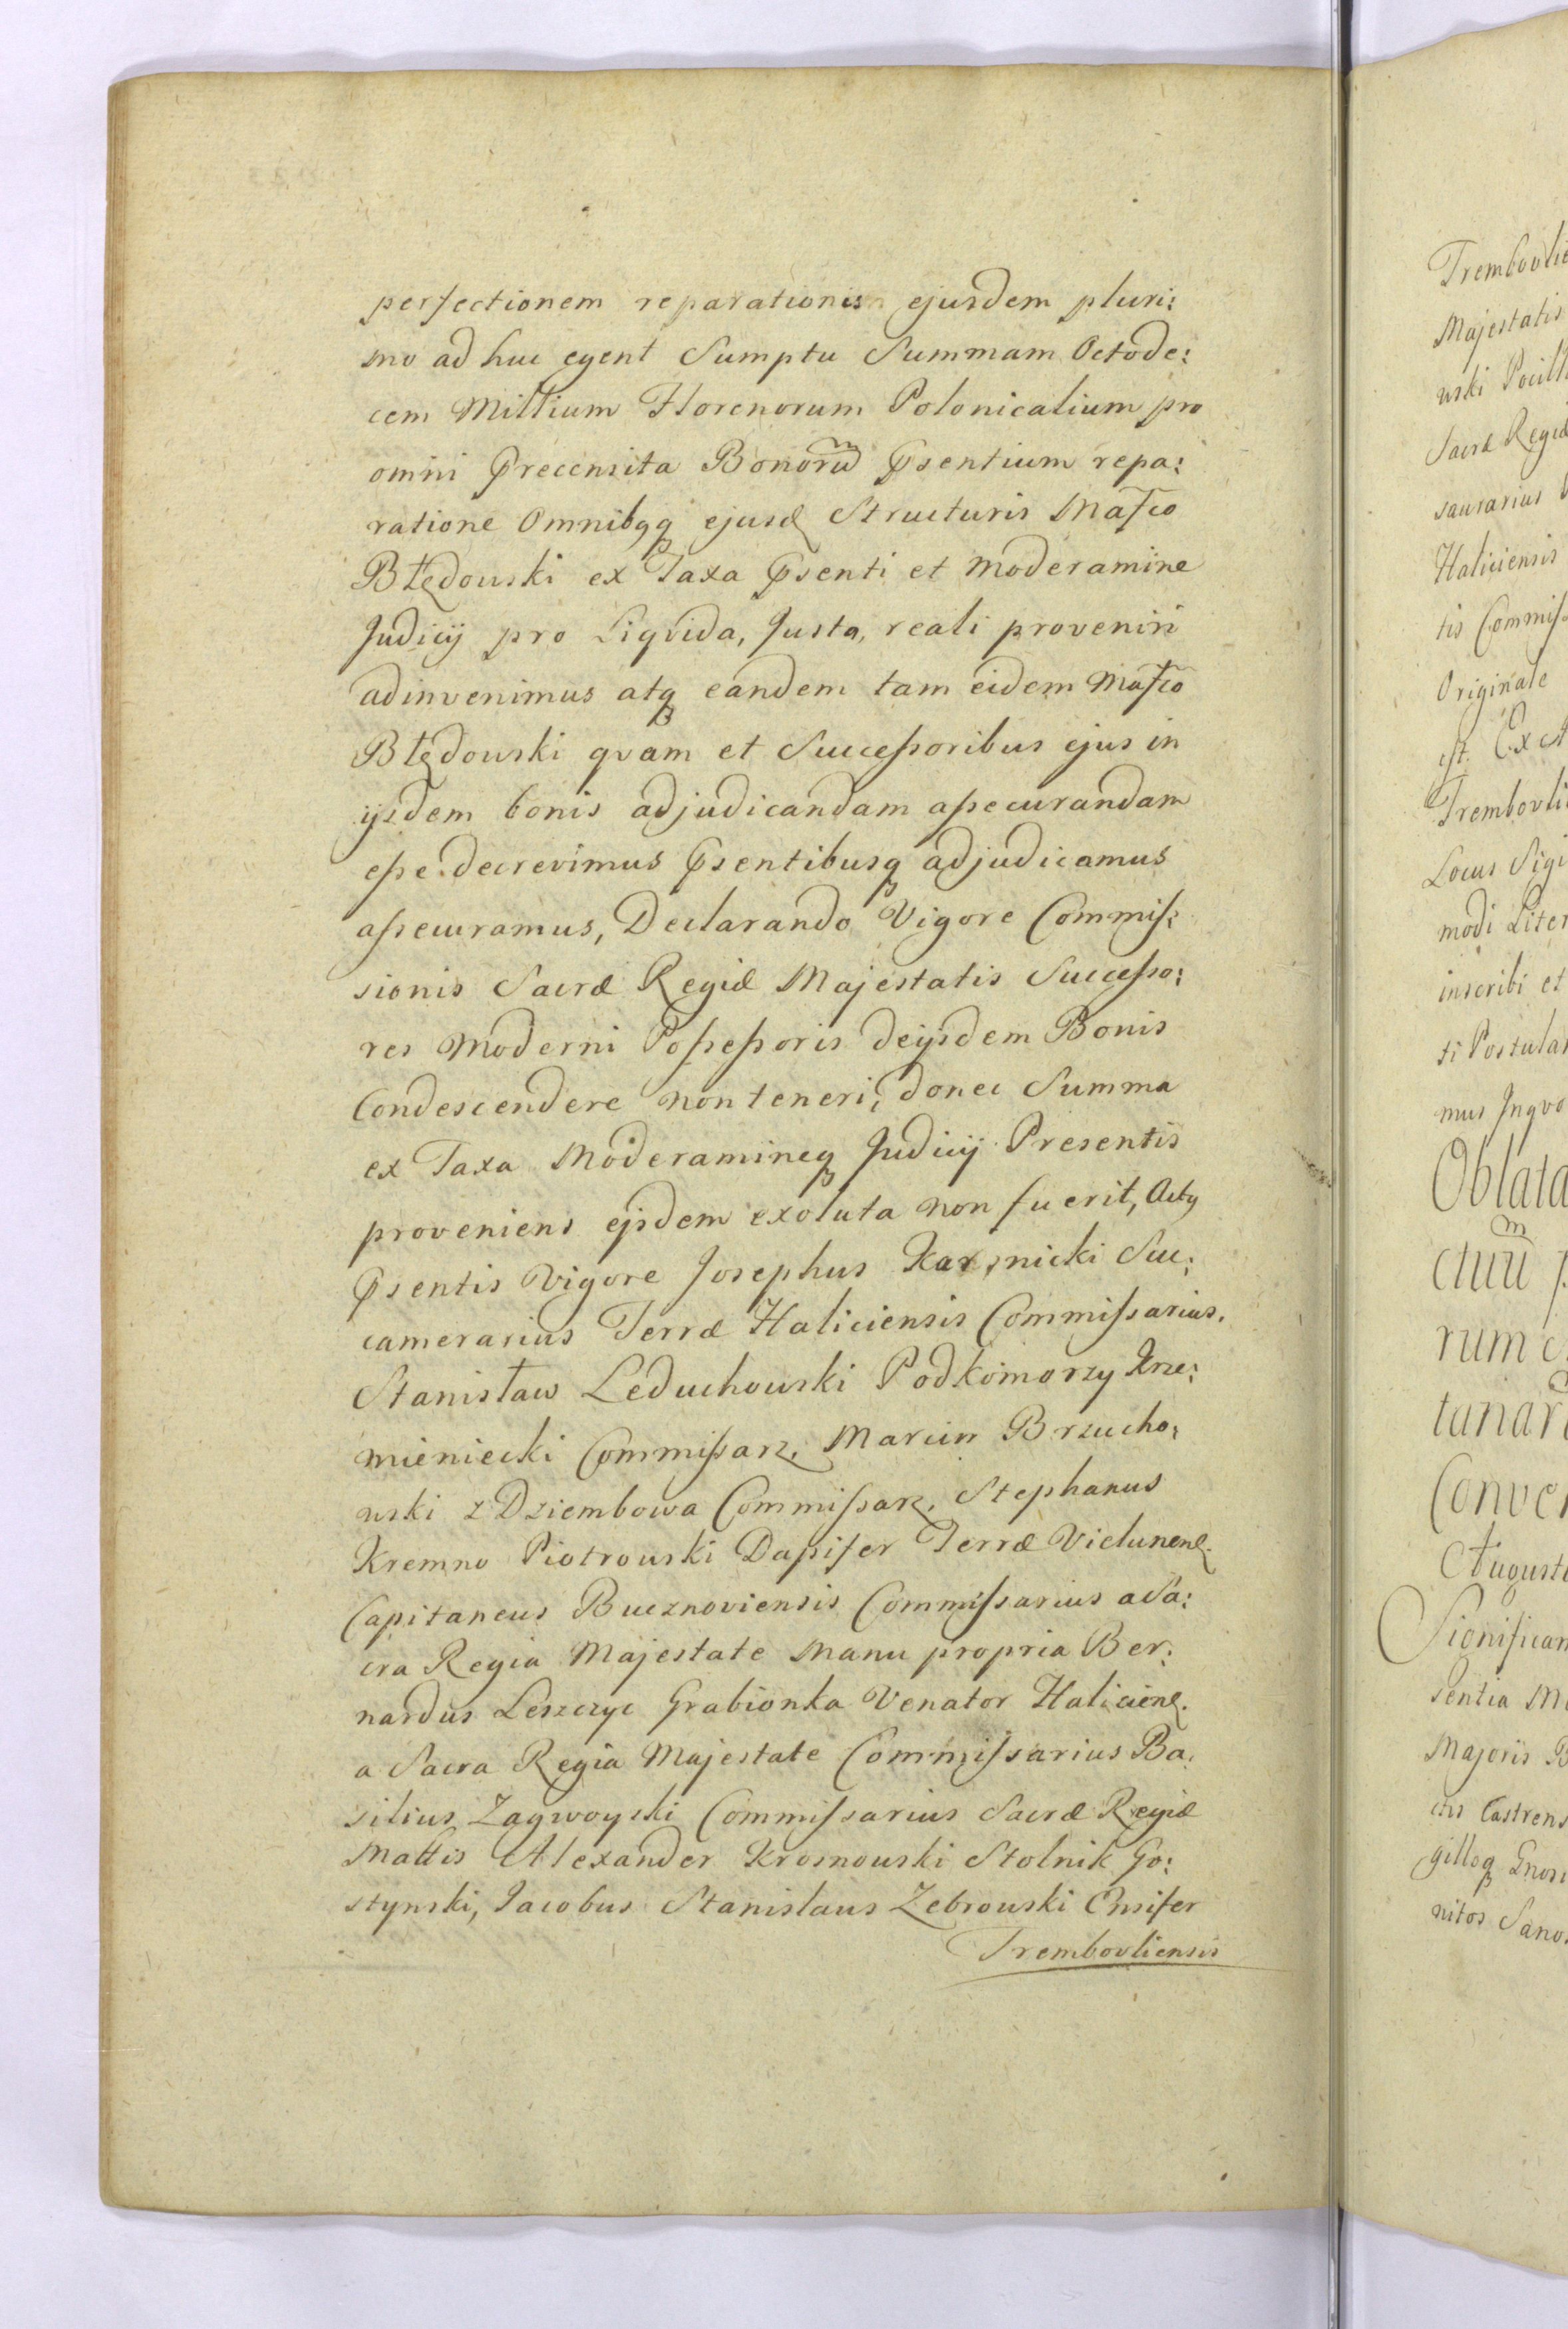 perfectionem reparationis ejusdem pluri:
mo ad huc egent Sumptu Summam Octode:
cem Millium Florenorum Polonicalium pro
omni Precensita Bonorum Psentium repa:
ratione Omnibqq ejusd Structuris Mafco
Błędowski ex Taxa Psenti et Moderamine
Judicij pro Liqvida, Justa, reali proveniri
adinvenimus atq eandem tam eidem Mafco
Błędowski qvam et Successoribus ejus in
ijsdem bonis adjudicandam assecurandam
esse decrevimus Psentibusq adjudicamus
assecuramus, Declarando Vigore Commis:
sionis Sacræ Regiæ Majestatis Successo:
res Moderni Possessoris deijsdem Bonis
Condescendere non teneri, donec Summa
ex Taxa Moderamineq Judicij Presentis
proveniens ejsdem exoluta non fuerit, Acty
Psentis Vigore Josephus Karsnicki Suc:
camerarius Terræ Haliciensis Commissarius.
Stanisław Leduchowski Podkomorzy Krze:
mieniecki Commissarz, Marcin Brzucho:
wski z Dziembowa Commissarz, Stephanus
Kremno Piotrowski Dapifer Terræ Vielunens.
Capitaneus Bucznoviensis Commissarius a Sa:
cra Regia Majestate Manu propria Ber:
nardus Leszczyc Grabionka Venator Haliciens.
a Sacra Regia Majestate Commissarius Ba:
silius Zagwoyski Commissarius Sacræ Regiæ
Mattis Alexander Krosnowski Stolnik Go:
stynski, Jacobus Stanislaus Zebrowski Ensifer
Trembovliensis
Majestatis
Sacræ Regiæ
Haliciensis
tis Commiss
Originale
Locus Sigi
modi Liter
inscribi et
ti Postula
Oblata
ctuum
rum
Conven
Augusti
Majoris B